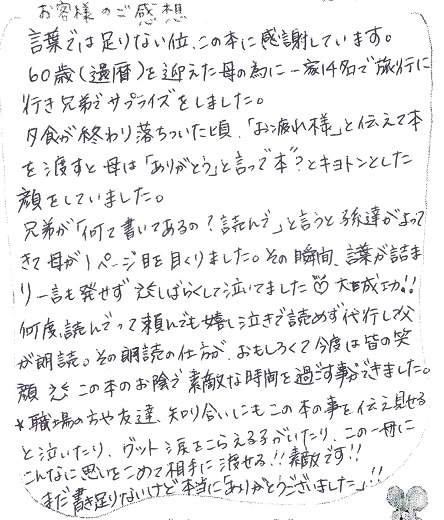 お客様のご感想
言葉では足りない位、この本に感謝しています。
60歳(還暦)を迎えた母の為に一家14名で旅行に
行き兄弟でサプライズをしました。
夕食が終わり落ちついた頃、「お疲れ様」と伝えて本
を渡すと母は「ありがとう」と言って"本"?とキョトンとした
顔をしていました。
兄弟が「何て書いてあるの?読んで」と言うと孫達がよって
きて母が1ページ目を目くりました。その瞬間、言葉が詰ま
り一言も発せず しばらくして泣いてました♡大成功!!
何度、読んでって頼んでも嬉し泣きで読めず代行して父
が朗読。その朗読の仕方が、おもしろくて今度は皆の笑
顔 この本のお陰で素敵な時間を過す事ができました。
*職場の方や友達、知り合いにもこの本の事を伝え見せる
と泣いたり、グット涙をこらえる子がいたり、この一冊に
こんなに思いをこめて相手に渡せる!!素敵です!!
まだ書き足りないけど本当に「ありがとうございました」!!